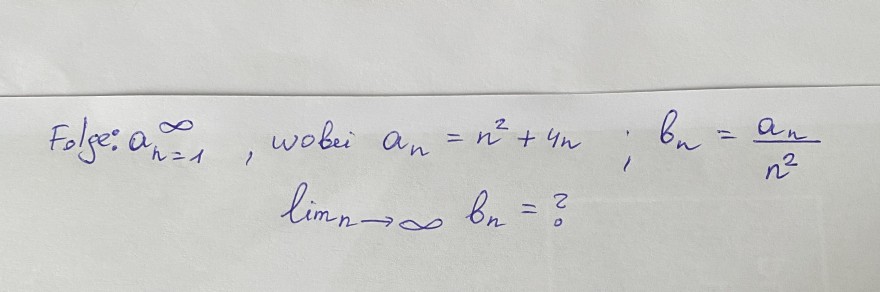 Folge: a_{n=1}^∞ , wobei a_n = n² + 4n ; b_n = a_n / n²
lim_{n→∞} b_n = ?